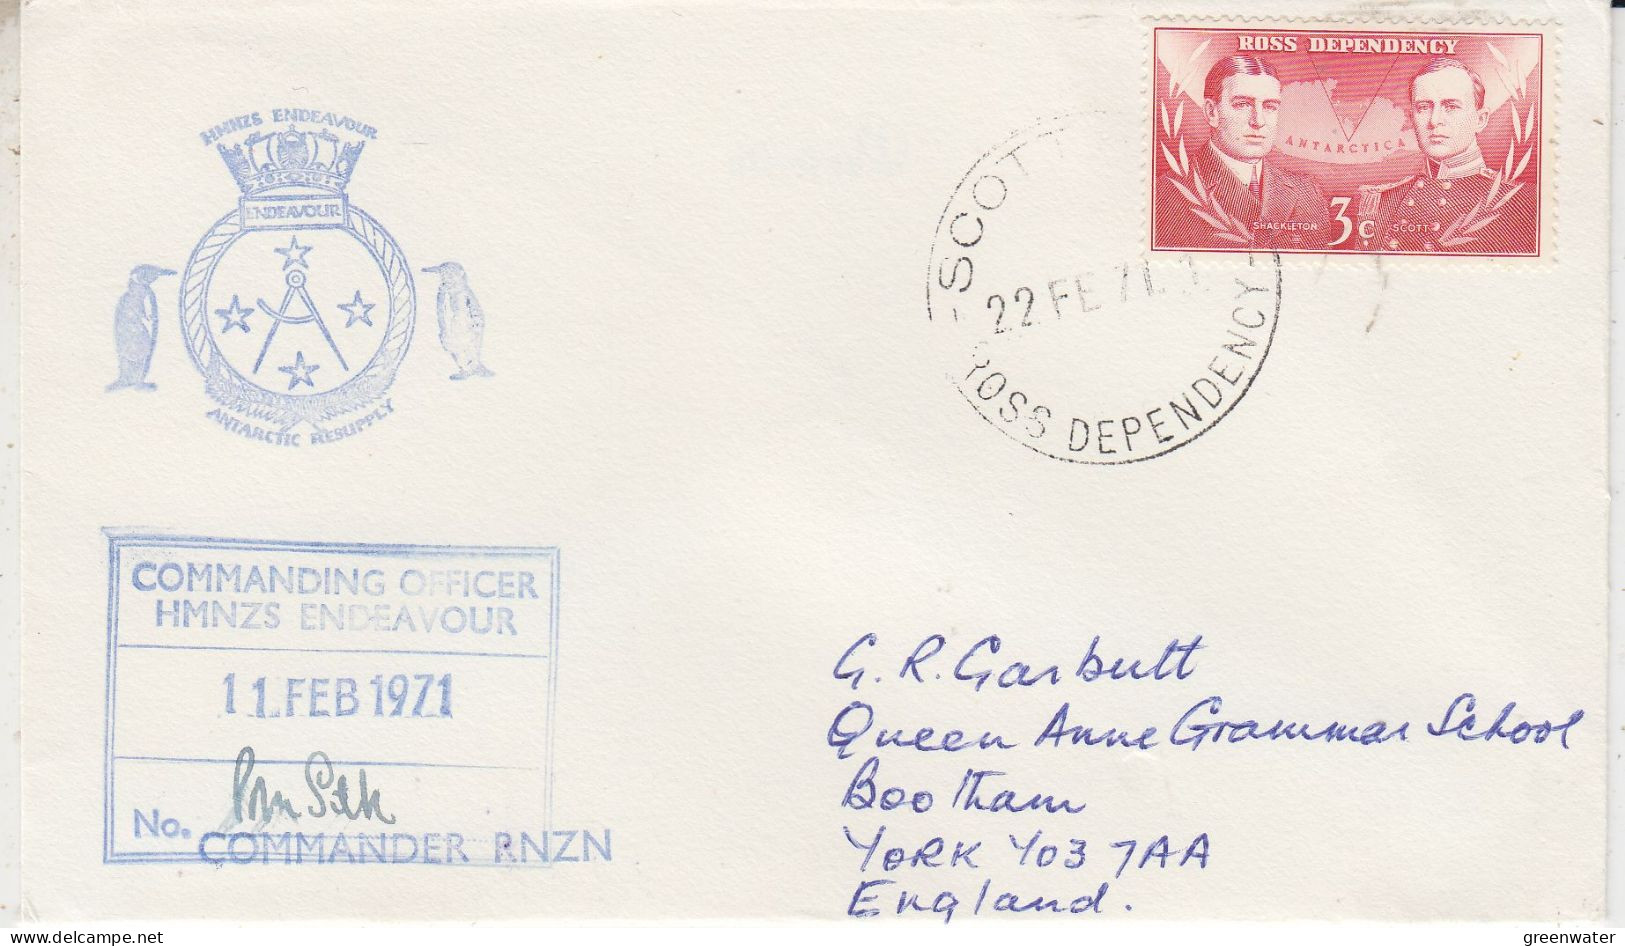 HMNZS ENDEAVOUR
ENDEAVOUR
ANTARCTIC RESUPPLY
ROSS DEPENDENCY
ANTARCTICA
SHACKLETON 3c SCOTT
SCOTT
22 FE 71
ROSS DEPENDENCY
COMMANDING OFFICER
HMNZS ENDEAVOUR
11.FEB 1971
No.
COMMANDER RNZN
G. R. Garbutt
Queen Anne Grammar School
Bootham
YORK YO3 7AA
England.
delcampe.net
greenwater